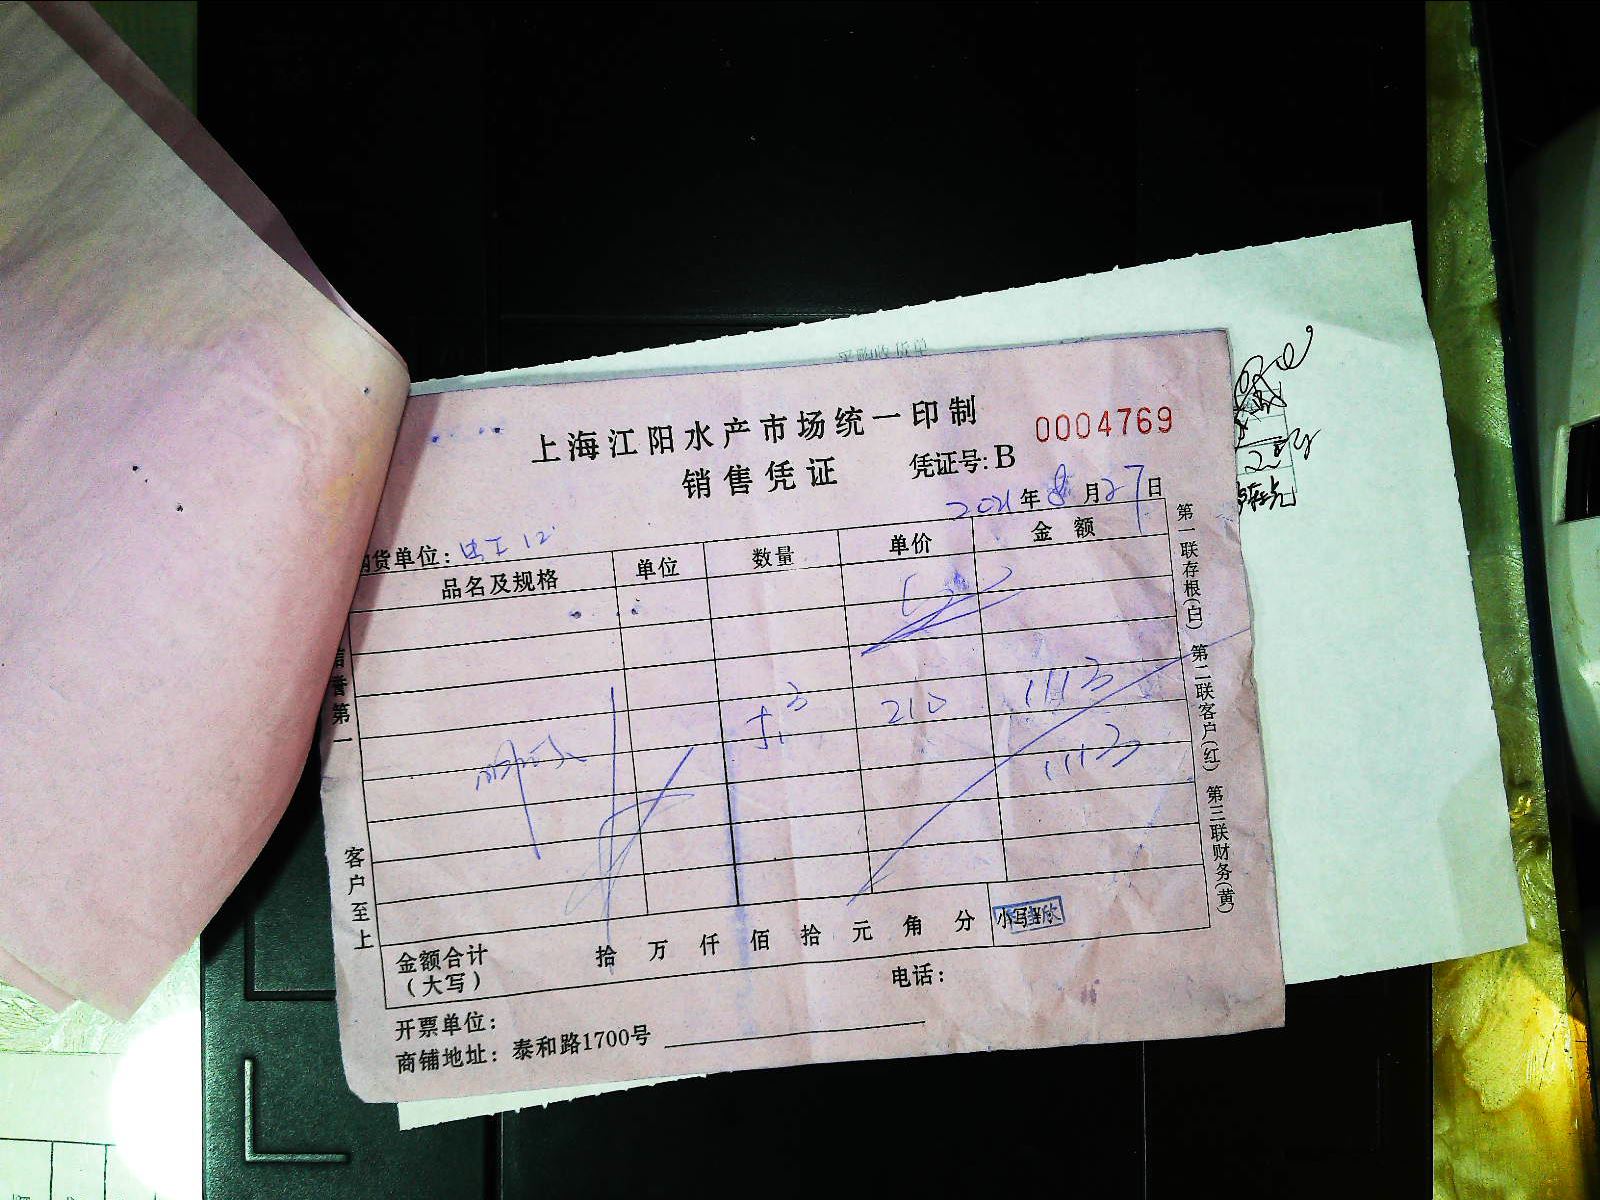 上海江阳水产市场统一印制
销售凭证 凭证号:B 0004769
2021年8月27日
购货单位:
品名及规格 单位 数量 单价 金额
210 1113
1113
金额合计(大写) 拾 万 仟 佰 拾 元 角 分 小写
开票单位: 电话:
商铺地址:泰和路1700号
信誉第一
客户至上
第一联存根(白) 第二联客户(红) 第三联财务(黄)
采购收货单